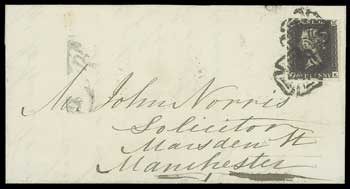 Mr. John Norris
Solicitor
Marsden St
Manchester